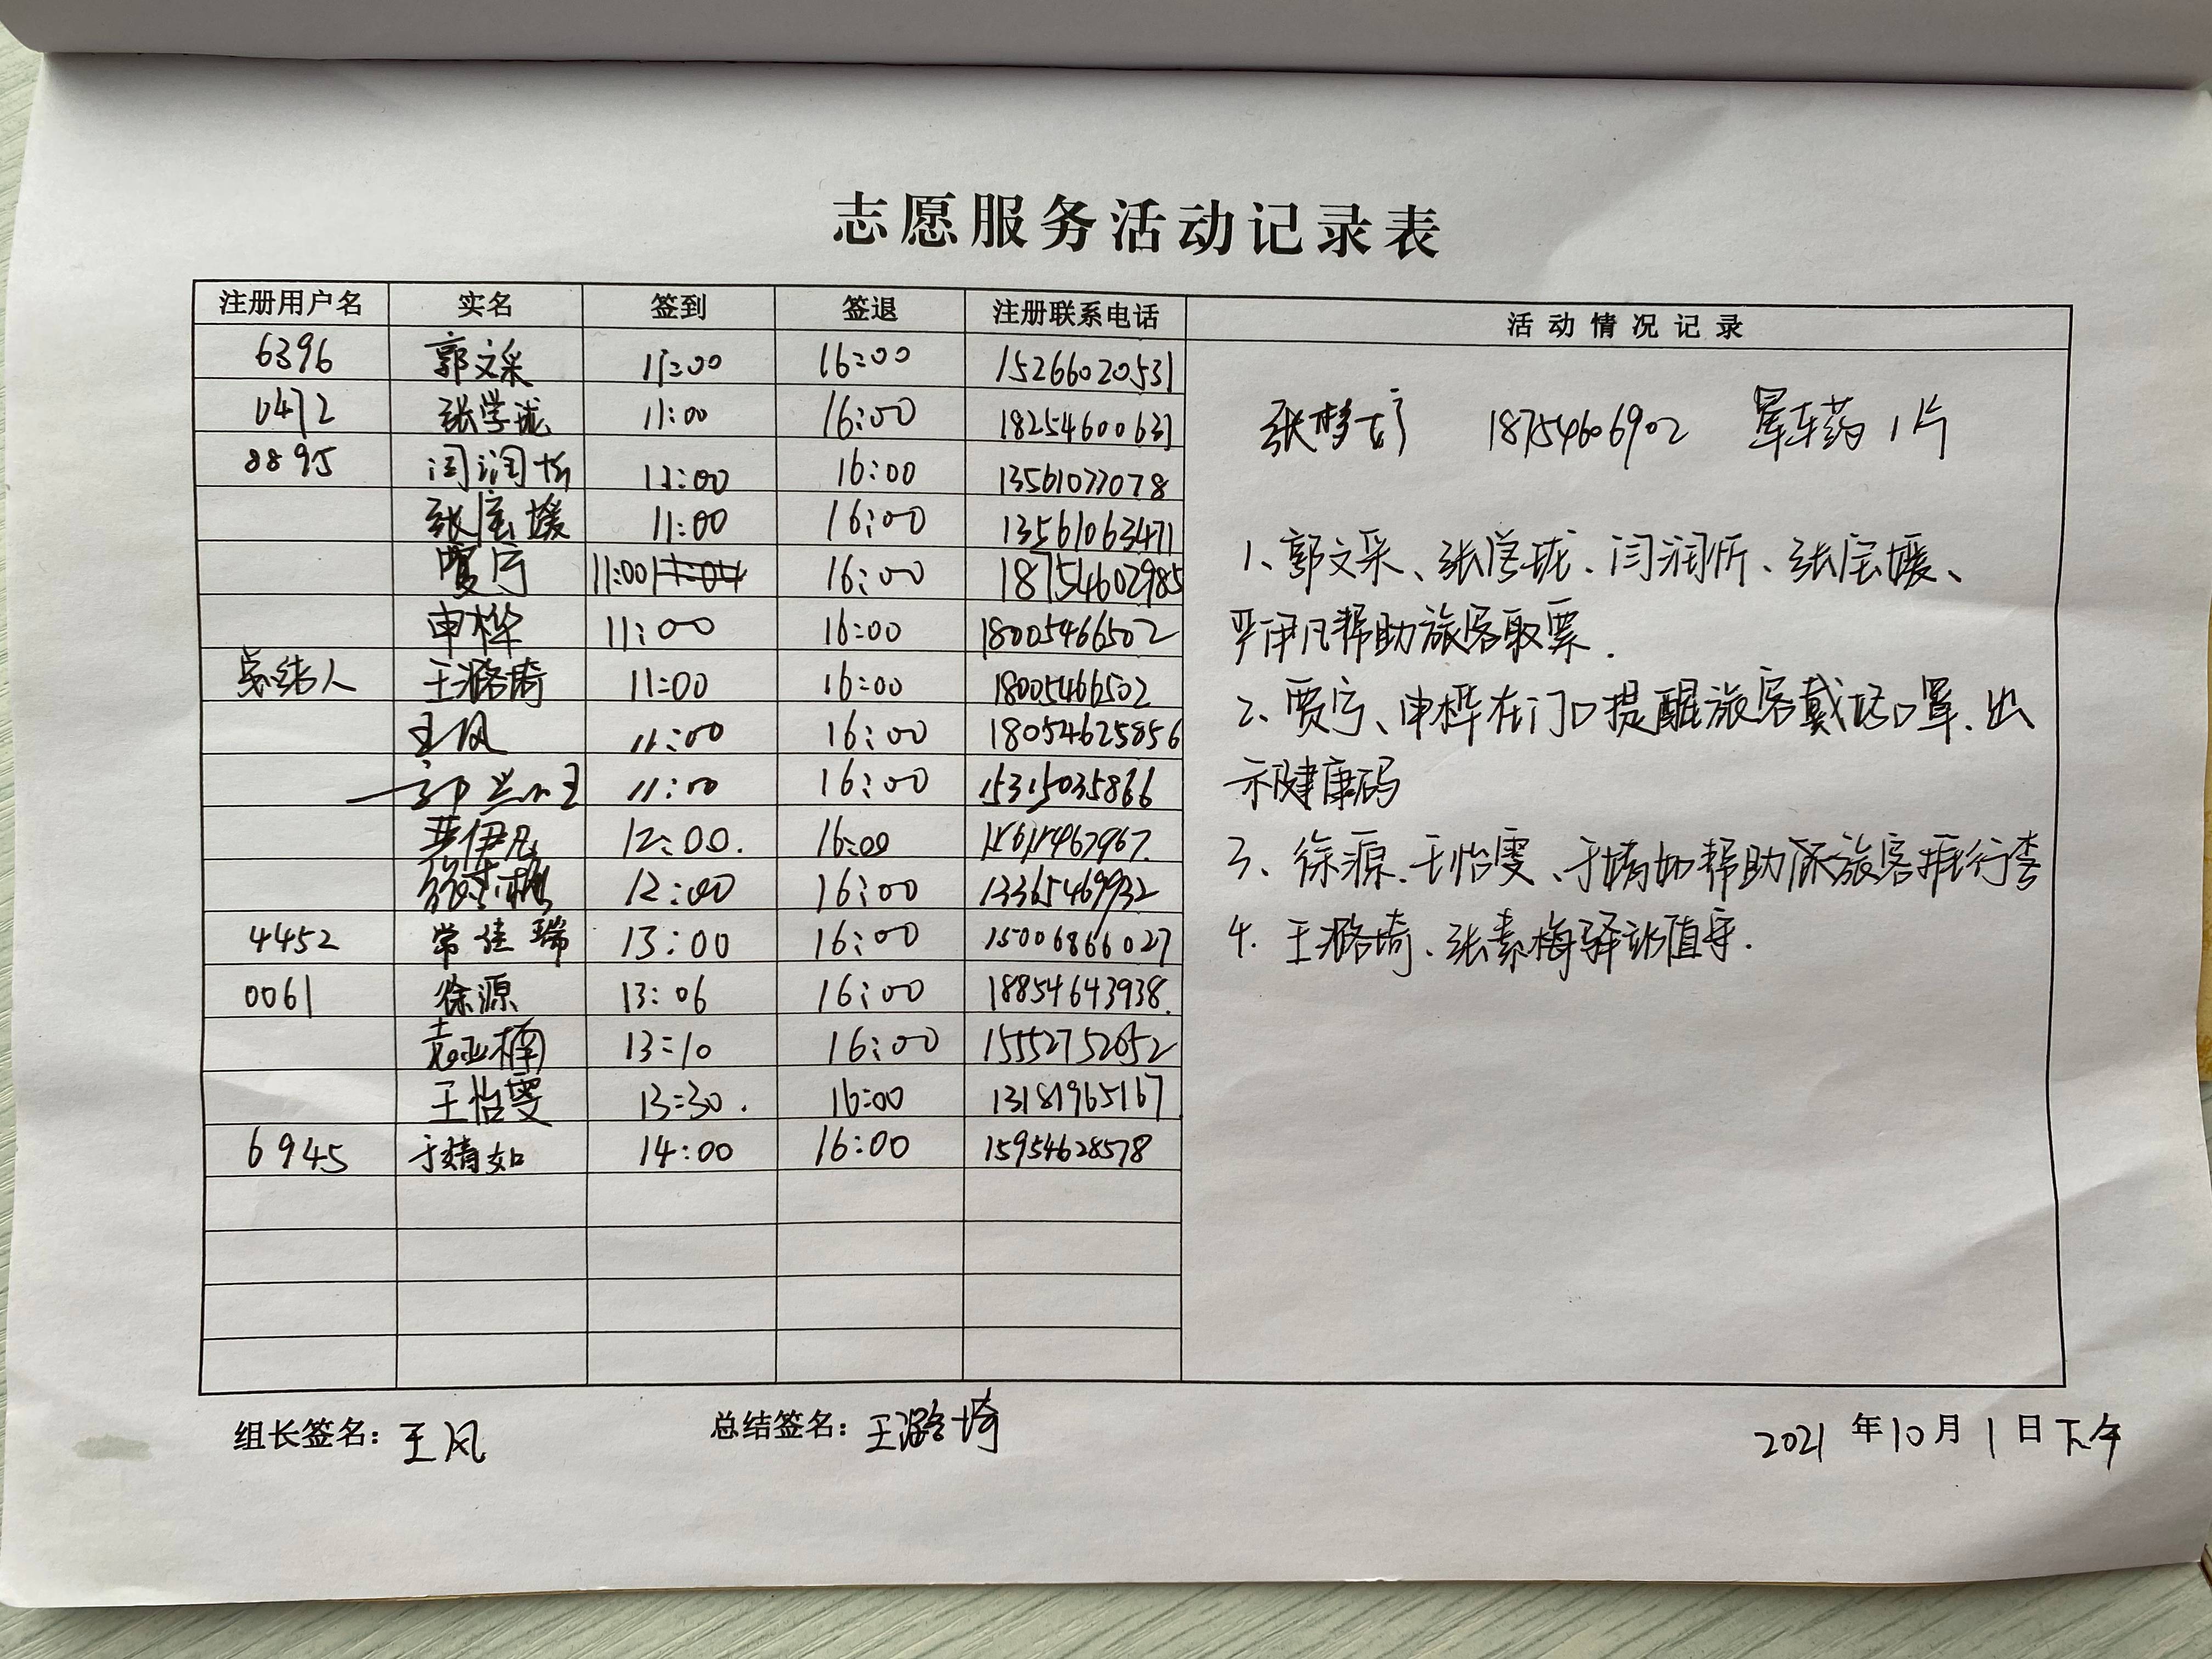 志愿服务活动记录表
注册用户名 实名 签到 签退 注册联系电话 活动情况记录
6396 郭文采 11:00 16:00 15266020531
0472 张学珑 11:00 16:00 18254600631
张梦 18754606902 晕车药 1片
8895 闫润忻 11:00 16:00 13561077078
张宝媛 11:00 16:00 13561063471
贾宁 11:00 16:00 18754602985
申桦 11:00 16:00 18005466502
总结人 王潞琦 11:00 16:00 18005466502
王风 11:00 16:00 18054625856
11:00 16:00 15315035866
严伊凡 12:00. 16:00 15615467967.
12:00 16:00 13365469932
4452 常佳瑞 13:00 16:00 15006866027
0061 徐源 13:06 16:00 18854643938.
袁亚楠 13:10 16:00 15552752652
王怡雯 13:30. 16:00 13181965167
6945 于婧如 14:00 16:00 15954628578
1、郭文采、张学珑、闫润忻、张宝媛、
严伊凡帮助旅客取票.
2、贾宁、申桦在门口提醒旅客戴好口罩、出
示健康码
3、徐源、王怡雯、于婧如帮助旅客推行李
4. 王潞琦、张素梅驿站值守.
组长签名：王风 总结签名：王潞琦 2021年10月1日下午